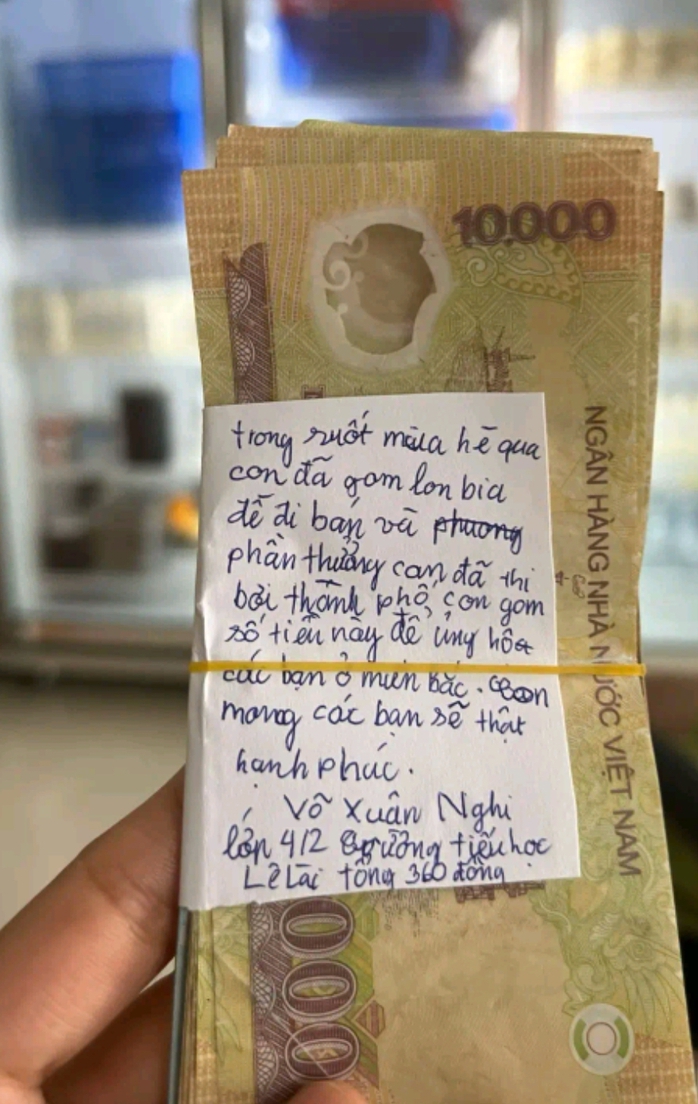 10.000
NGÂN HÀNG NHÀ NƯỚC VIỆT NAM
trong suốt mùa hè qua
con đã gom lon bia
để đi bán và phuong
phần thưởng con đã thi
bơi thành phố, con gom
số tiền này để ủng hộ
các bạn ở miền Bắc. con
mong các bạn sẽ thật
hạnh phúc.
Võ Xuân Nghi
lớp 4/2 trường tiểu học
Lê Lai tổng 360 đồng
000